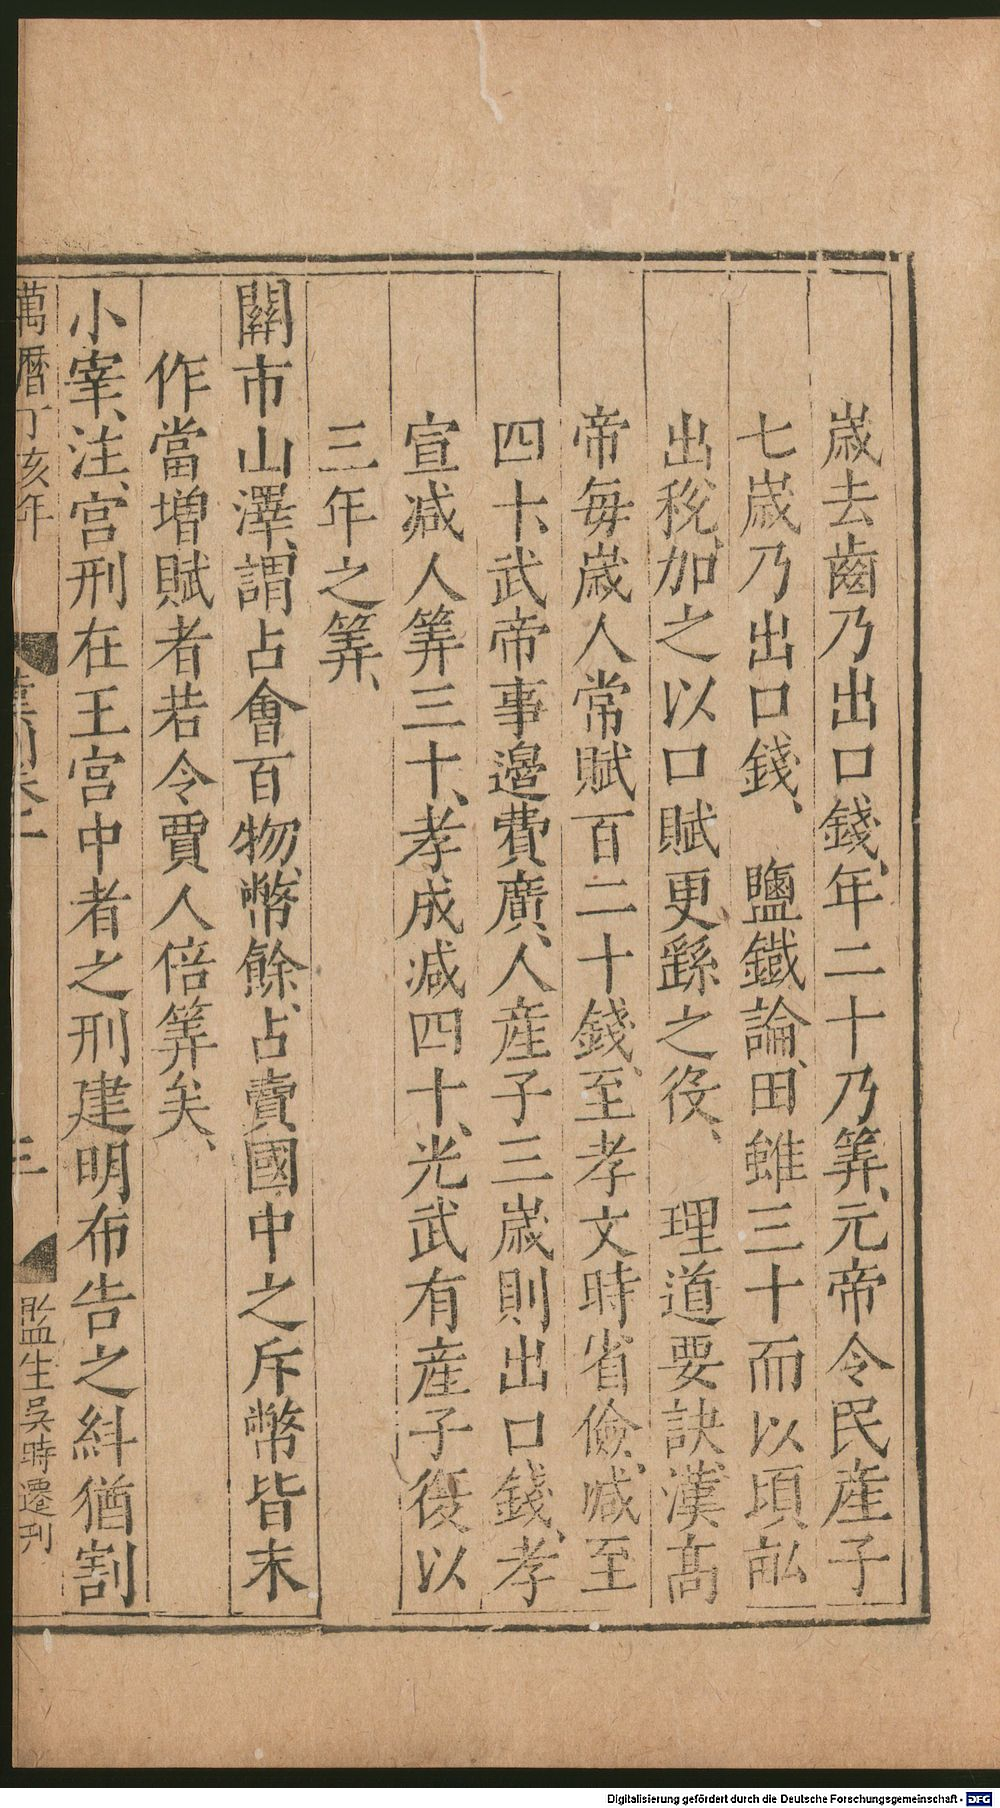 歳去齒乃出口錢、年二十乃筭、元帝令民産子
七歳乃出口錢、　鹽鐵論、田雖三十而以頃畝
出稅、加之以口賦更、繇之役、　理道要訣、漢髙
帝毎歳人常賦百二十錢、至孝文時省儉、减至
四十、武帝事邉費廣、人産子三歳則出口錢、孝
宣减人筭三十、孝成减四十、光武有産子復以
三年之筭、
關市山澤、謂占㑹百物、幣餘、占賣國中之斥幣皆末
作當增賦者若今賈人倍筭矣、
小宰、注、宫刑在王宫中者之刑建明布告之糾猶割
萬曆丁亥年
卷二
三
監生吳時遷刊
Digitalisierung gefördert durch die Deutsche Forschungsgemeinschaft - DFG